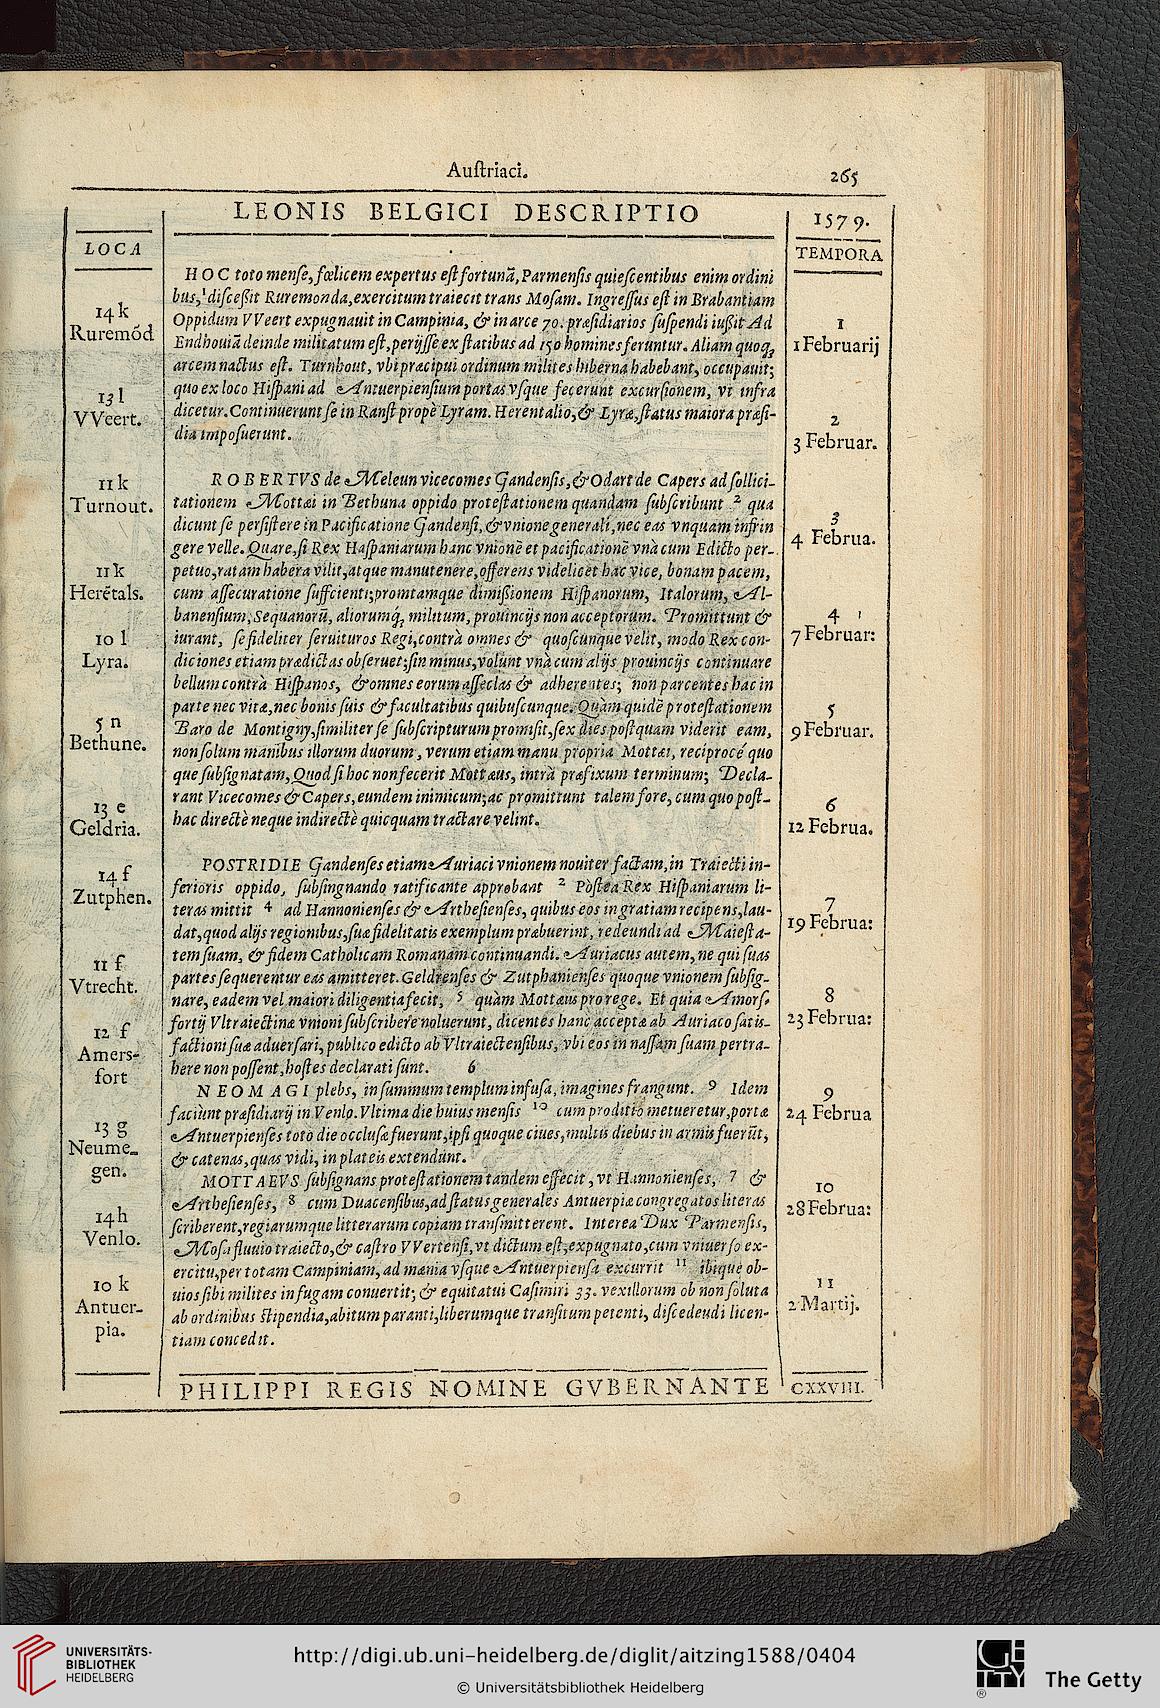 Auſtriaci.
265
LEONIS BELGICI DESCRIPTIO
1579.
LOCA
TEMPORA
14 k
Ruremōd
13 l
VVeert.
11 k
Turnout.
11 k
Herētals.
10 l
Lyra.
5 n
Bethune.
13 e
Geldria.
14 f
Zutphen.
11 f
Vtrecht.
12 f
Amers-
fort
13 g
Neume-
gen.
14 h
Venlo.
10 k
Antuer-
pia.
HOC toto menſe, fœlicem expertus eſt fortunā, Parmenſis quieſcentibus enim ordini
bus,¹ diſceßit Ruremonda, exercitum traiecit trans Moſam. Ingreſſus eſt in Brabantiam
Oppidum VVeert expugnauit in Campinia, & in arce 70. præſidiarios ſuſpendi iußit Ad
Endhouiā deinde militatum eſt, perijſſe ex ſtatibus ad 150 homines feruntur. Aliam quoq;
arcem nactus eſt. Turnhout, vbi præcipui ordinum milites hiberna habebant, occupauit;
quo ex loco Hiſpani ad Antuerpienſium portas vſque fecerunt excurſionem, vt infra
dicetur. Continuerunt ſe in Ranſt propè Lyram. Herentalio, & Lyræ, ſtatus maiora præſi-
dia impoſuerunt.
ROBERTVS de Meleun vicecomes Gandenſis, & Odart de Capers ad ſollici-
tationem Mottæi in Bethuna oppido proteſtationem quandam ſubſcribunt ² qua
dicunt ſe perſiſtere in Pacificatione Gandenſi, & vnione generali, nec eas vnquam infrin
gere velle. Quare, ſi Rex Haſpaniarum hanc vnionē et pacificationē vnà cum Edicto per-
petuo, ratam habera vilit, atque manutenere, offerens videlicet hac vice, bonam pacem,
cum aſſecuratione ſuffcienti; promtamque dimißionem Hiſpanorum, Italorum, Al-
banenſium, Sequanorū, aliorumq́; militum, prouincijs non acceptorum. Promittunt &
iurant, ſe fideliter ſeruituros Regi, contrà omnes & quoſcunque velit, modo Rex con-
diciones etiam prædictas obſeruet; ſin minus, volunt vnà cum alijs prouincijs continuare
bellum contrà Hiſpanos, & omnes eorum aſſeclas & adherentes; non parcentes hac in
parte nec vitæ, nec bonis ſuis & facultatibus quibuſcunque. Quàm quidē proteſtationem
Baro de Montigny, ſimiliter ſe ſubſcripturum promiſit, ſex dies poſtquam viderit eam,
non ſolum manibus illorum duorum, verum etiam manu propria Mottæi, reciprocé quo
que ſubſignatam, Quod ſi hoc non fecerit Mottæus, intrà præfixum terminum; Decla-
rant Vicecomes & Capers, eundem inimicum; ac promittunt talem fore, cum quo poſt-
hac directè neque indirectè quicquam tractare velint.
POSTRIDIE Gandenſes etiam Auriaci vnionem nouiter factam, in Traiecti in-
ferioris oppido, ſubſingnando ratificante approbant ² Poſtea Rex Hiſpaniarum li-
teras mittit ⁴ ad Hannonienſes & Artheſienſes, quibus eos in gratiam recipens, lau-
dat, quod alijs regionibus, ſuæ fidelitatis exemplum præbuerint, redeundi ad Maieſta-
tem ſuam, & fidem Catholicam Romanam continuandi. Auriacus autem, ne qui ſuas
partes ſequerentur eas amitteret. Geldrenſes & Zutphanienſes quoque vnionem ſubſig-
nare, eadem vel maiori diligentia fecit, ⁵ quàm Mottæus pro rege. Et quia Amorſ-
fortij Vltraiectinæ vnioni ſubſcribere noluerunt, dicentes hanc acceptæ ab Auriaco ſatis-
factioni ſuæ aduerſari, publico edicto ab Vltraiectenſibus, vbi eos in naſſam ſuam pertra-
here non poſſent, hoſtes declarati ſunt. 6
NEOMAGI plebs, in ſummum templum infuſa, imagines frangunt. ⁹ Idem
faciunt præſidiarij in Venlo. Vltima die huius menſis ¹⁰ cum proditio metueretur, portæ
Antuerpienſes toto die occluſæ fuerunt, ipſi quoque ciues, multis diebus in armis fuerūt,
& catenas, quas vidi, in plateis extendunt.
MOTTAEVS ſubſignans proteſtationem tandem effecit, vt Hannonienſes, 7 &
Artheſienſes, ⁸ cum Duacenſibus, ad ſtatus generales Antuerpiæ congregatos literas
ſcriberent, regiarumque litterarum copiam tranſmitterent. Interea Dux Parmenſis,
Moſa fluuio traiecto, & caſtro VVertenſi, vt dictum eſt, expugnato, cum vniuerſo ex-
ercitu, per totam Campiniam, ad mænia vſque Antuerpienſa excurrit ¹¹ ibique ob-
uios ſibi milites in fugam conuertit; & equitatui Caſimiri 33. vexillorum ob non ſoluta
ab ordinibus ſtipendia, abitum paranti, liberumque tranſitum petenti, diſcedeudi licen-
tiam concedit.
1
1 Februarij
2
3 Februar.
3
4 Februa.
4
7 Februar:
5
9 Februar.
6
12 Februa.
7
19 Februa:
8
23 Februa:
9
24 Februa
10
28 Februa:
11
2 Martij.
PHILIPPI REGIS NOMINE GVBERNANTE
CXXVIII.
UNIVERSITÄTS-
BIBLIOTHEK
HEIDELBERG
http://digi.ub.uni-heidelberg.de/diglit/aitzing1588/0404
© Universitätsbibliothek Heidelberg
GETTY
®
The Getty